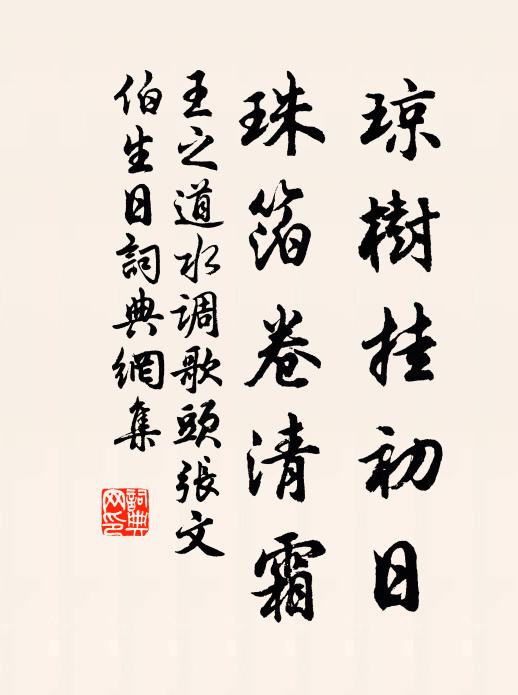 琼樹挂初日
珠箔卷清霜
王之道水调歌頭張文
伯生日詞典網集
詞典网印